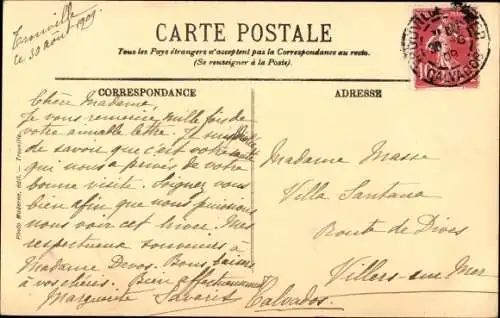 Trouville
le 30 août 1909
CARTE POSTALE
Tous les Pays étrangers n'acceptent pas la Correspondance au recto.
(Se renseigner à la Poste).
CORRESPONDANCE
ADRESSE
Chère Madame,
Je vous remercie mille fois de
votre aimable lettre. Je suis désolée
de savoir que c'est votre santé
qui nous a privés de votre
bonne visite. Soignez vous
bien afin que nous puissions
nous voir cet hiver. Mes
respectueux souvenirs à
Madame Devos. Bons baisers
à vos chéries. Bien affectueusement
Marguerite Savaris
Madame Masse
Villa Santana
Route de Dives
Villers-sur-Mer
Calvados
Photo Moderne, édit. - Trouville.
CALVADOS